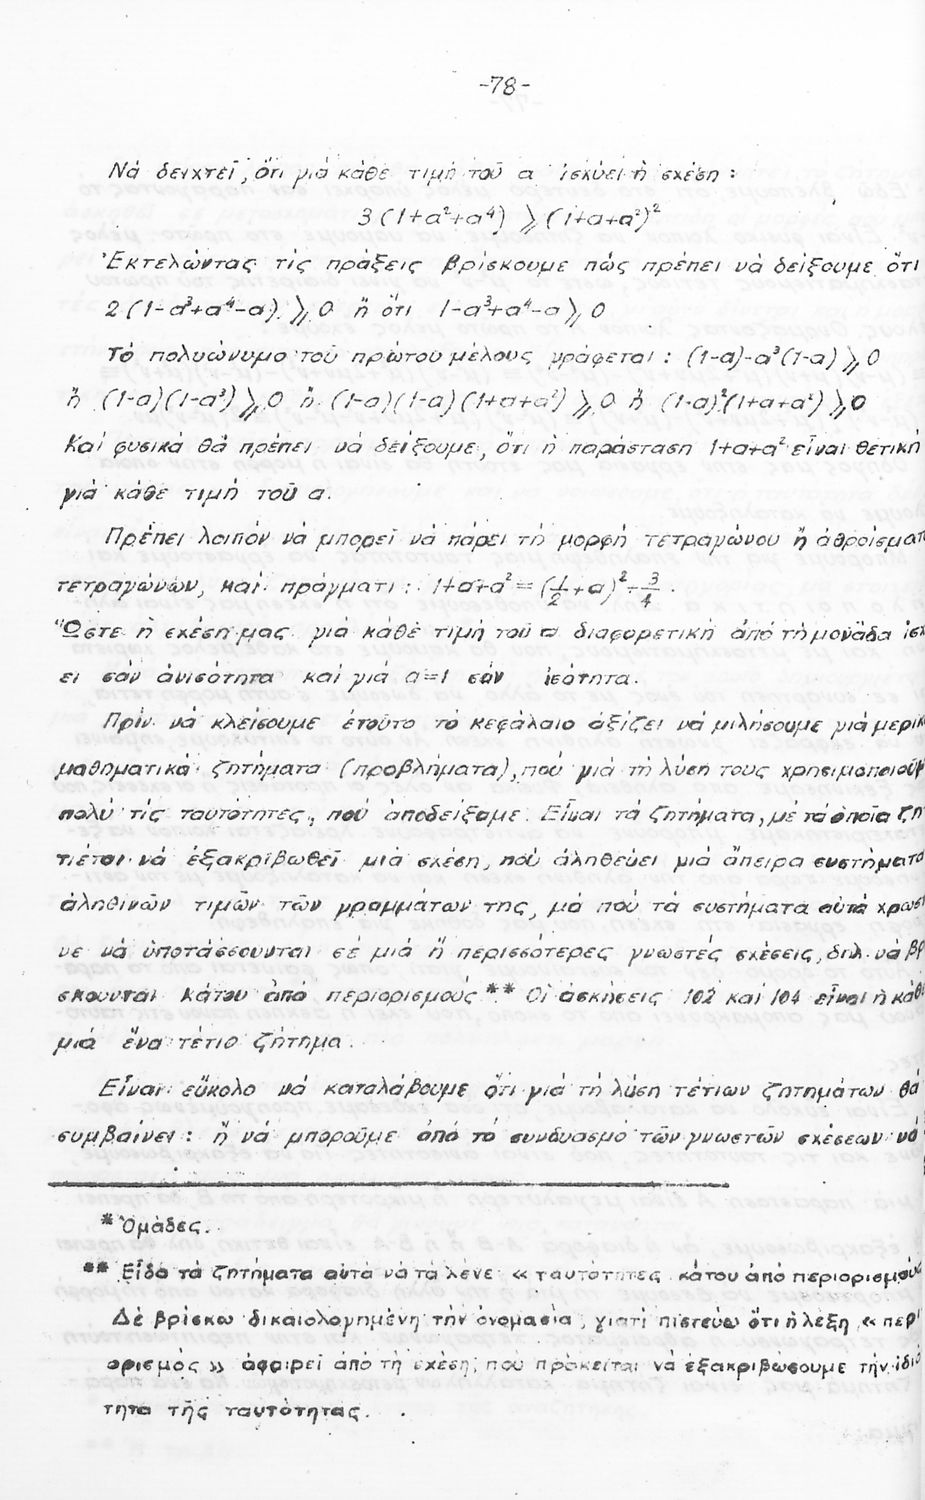 -78-
Νά δειχτεῖ, ὅτι γιά κάθε τιμή τοῦ α ἰσχύει ἡ σχέση :
3 (1+α²+α⁴) ⩾ (1+α+α²)²
Ἐκτελώντας τίς πράξεις βρίσκουμε πώς πρέπει νά δείξουμε ὅτι
2 (1-α³+α⁴-α) ⩾ 0 ἤ ὅτι 1-α³+α⁴-α ⩾ 0
Τό πολυώνυμο τοῦ πρώτου μέλους γράφεται : (1-α)-α³(1-α) ⩾ 0
ἤ (1-α)(1-α³) ⩾ 0 ἤ (1-α)(1-α)(1+α+α²) ⩾ 0 ἤ (1-α)²(1+α+α²) ⩾ 0
Καί φυσικά θά πρέπει νά δείξουμε, ὅτι ἡ παράσταση 1+α+α² εἶναι θετική
γιά κάθε τιμή τοῦ α.
Πρέπει λοιπόν νά μπορεῖ νά πάρει τή μορφή τετραγώνου ἤ ἀθροίσματ
τετραγώνων, καί πράγματι : 1+α+α² = (1/2+α)²+3/4 .
Ὥστε ἡ σχέση μας γιά κάθε τιμή τοῦ α διαφορετική ἀπό τή μονάδα ἰσχ
ει σάν ἀνισότητα καί γιά α=1 σάν ἰσότητα.
Πρίν νά κλείσουμε ἐτοῦτο τό κεφάλαιο ἀξίζει νά μιλήσουμε γιά μερικ
μαθηματικά ζητήματα (προβλήματα), που γιά τή λύση τους χρησιμοποιοῦμ
πολύ τίς ταυτότητες, πού ἀποδείξαμε. Εἶναι τά ζητήματα, με τά ὁποῖα ζη
τιέται νά ἐξακριβωθεῖ μιά σχέση, πού ἀληθεύει γιά ἄπειρα συστήματα
ἀληθινῶν τιμῶν τῶν γραμμάτων της, μά πού τά συστήματα αὐτά χρωστ
νε νά ὑποτάσσουνται σέ μιά ἤ περισσότερες γνωστές σχέσεις, δηλ. νά βρ
σκουνται κάτου ἀπό περιορισμούς **. Οἱ ἀσκήσεις 102 καί 104 εἶναι ἡ κάθε
μιά ἕνα τέτιο ζήτημα.
Εἶναι εὔκολο νά καταλάβουμε ὅτι γιά τή λύση τέτιων ζητημάτων θά
συμβαίνει : ἤ νά μποροῦμε ἀπό τό συνδυασμό τῶν γνωστῶν σχέσεων νά
* Ὁμάδες.
** Εἶδα τά ζητήματα αὐτά νά τά λένε « ταυτότητες κάτου ἀπό περιορισμού
Δέ βρίσκω δικαιολογημένη τήν ὀνομασία, γιατί πιστεύω ὅτι ἡ λέξη « περι
ορισμός » ἀφαιρεῖ ἀπό τή σχέση, που πρόκειται νά ἐξακριβώσουμε τήν ἰδιό
τητα τῆς ταυτότητας.